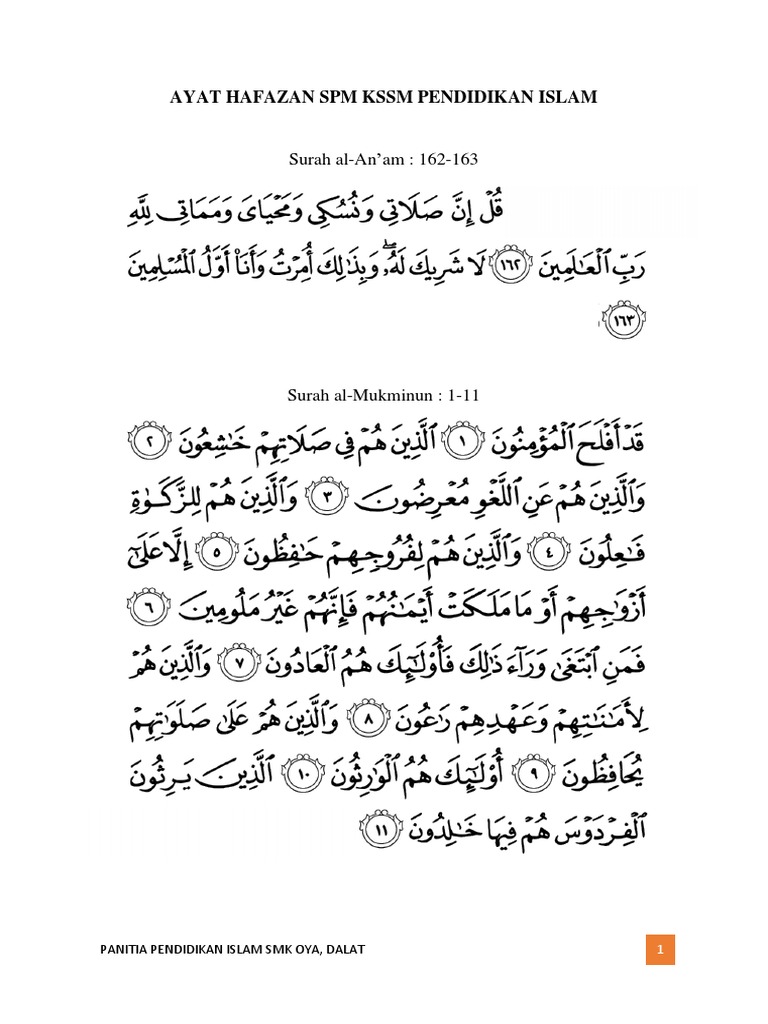 AYAT HAFAZAN SPM KSSM PENDIDIKAN ISLAM
Surah al-An’am : 162-163
قُلْ إِنَّ صَلَاتِي وَنُسُكِي وَمَحْيَايَ وَمَمَاتِي لِلَّهِ
رَبِّ الْعَالَمِينَ ١٦٢ لَا شَرِيكَ لَهُۥ ۖ وَبِذَٰلِكَ أُمِرْتُ وَأَنَا۠ أَوَّلُ الْمُسْلِمِينَ
١٦٣
Surah al-Mukminun : 1-11
قَدْ أَفْلَحَ الْمُؤْمِنُونَ ١ الَّذِينَ هُمْ فِي صَلَاتِهِمْ خَٰشِعُونَ ٢
وَالَّذِينَ هُمْ عَنِ اللَّغْوِ مُعْرِضُونَ ٣ وَالَّذِينَ هُمْ لِلزَّكَوٰةِ
فَٰعِلُونَ ٤ وَالَّذِينَ هُمْ لِفُرُوجِهِمْ حَٰفِظُونَ ٥ إِلَّا عَلَىٰٓ
أَزْوَٰجِهِمْ أَوْ مَا مَلَكَتْ أَيْمَٰنُهُمْ فَإِنَّهُمْ غَيْرُ مَلُومِينَ ٦
فَمَنِ ابْتَغَىٰ وَرَآءَ ذَٰلِكَ فَأُولَٰٓئِكَ هُمُ الْعَادُونَ ٧ وَالَّذِينَ هُمْ
لِأَمَٰنَٰتِهِمْ وَعَهْدِهِمْ رَٰعُونَ ٨ وَالَّذِينَ هُمْ عَلَىٰ صَلَوَٰتِهِمْ
يُحَافِظُونَ ٩ أُولَٰٓئِكَ هُمُ الْوَٰرِثُونَ ١٠ الَّذِينَ يَرِثُونَ
الْفِرْدَوْسَ هُمْ فِيهَا خَٰلِدُونَ ١١
PANITIA PENDIDIKAN ISLAM SMK OYA, DALAT 1